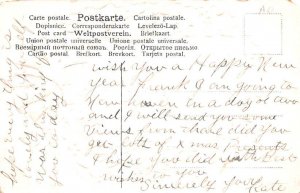 Carte postale. Postkarte. Cartolina postale.
Dopisnice. Correspondenzkarte. Levelező-Lap.
Post card Weltpostverein. Briefkaart.
Union postale universelle. Unione postale universale.
Всемірный почтовый союзъ. Россія. Открытое письмо.
Cartão postal. Brefkort. Brevkort. Tarjeta postal.
wish you a Happy New
Year Frank I am going to
New haven in a day or two
and I will send you some
Views from there did you
get lots of Xmas Presents
I hope you did with Best
wishes to you
Sincerely your
Kate